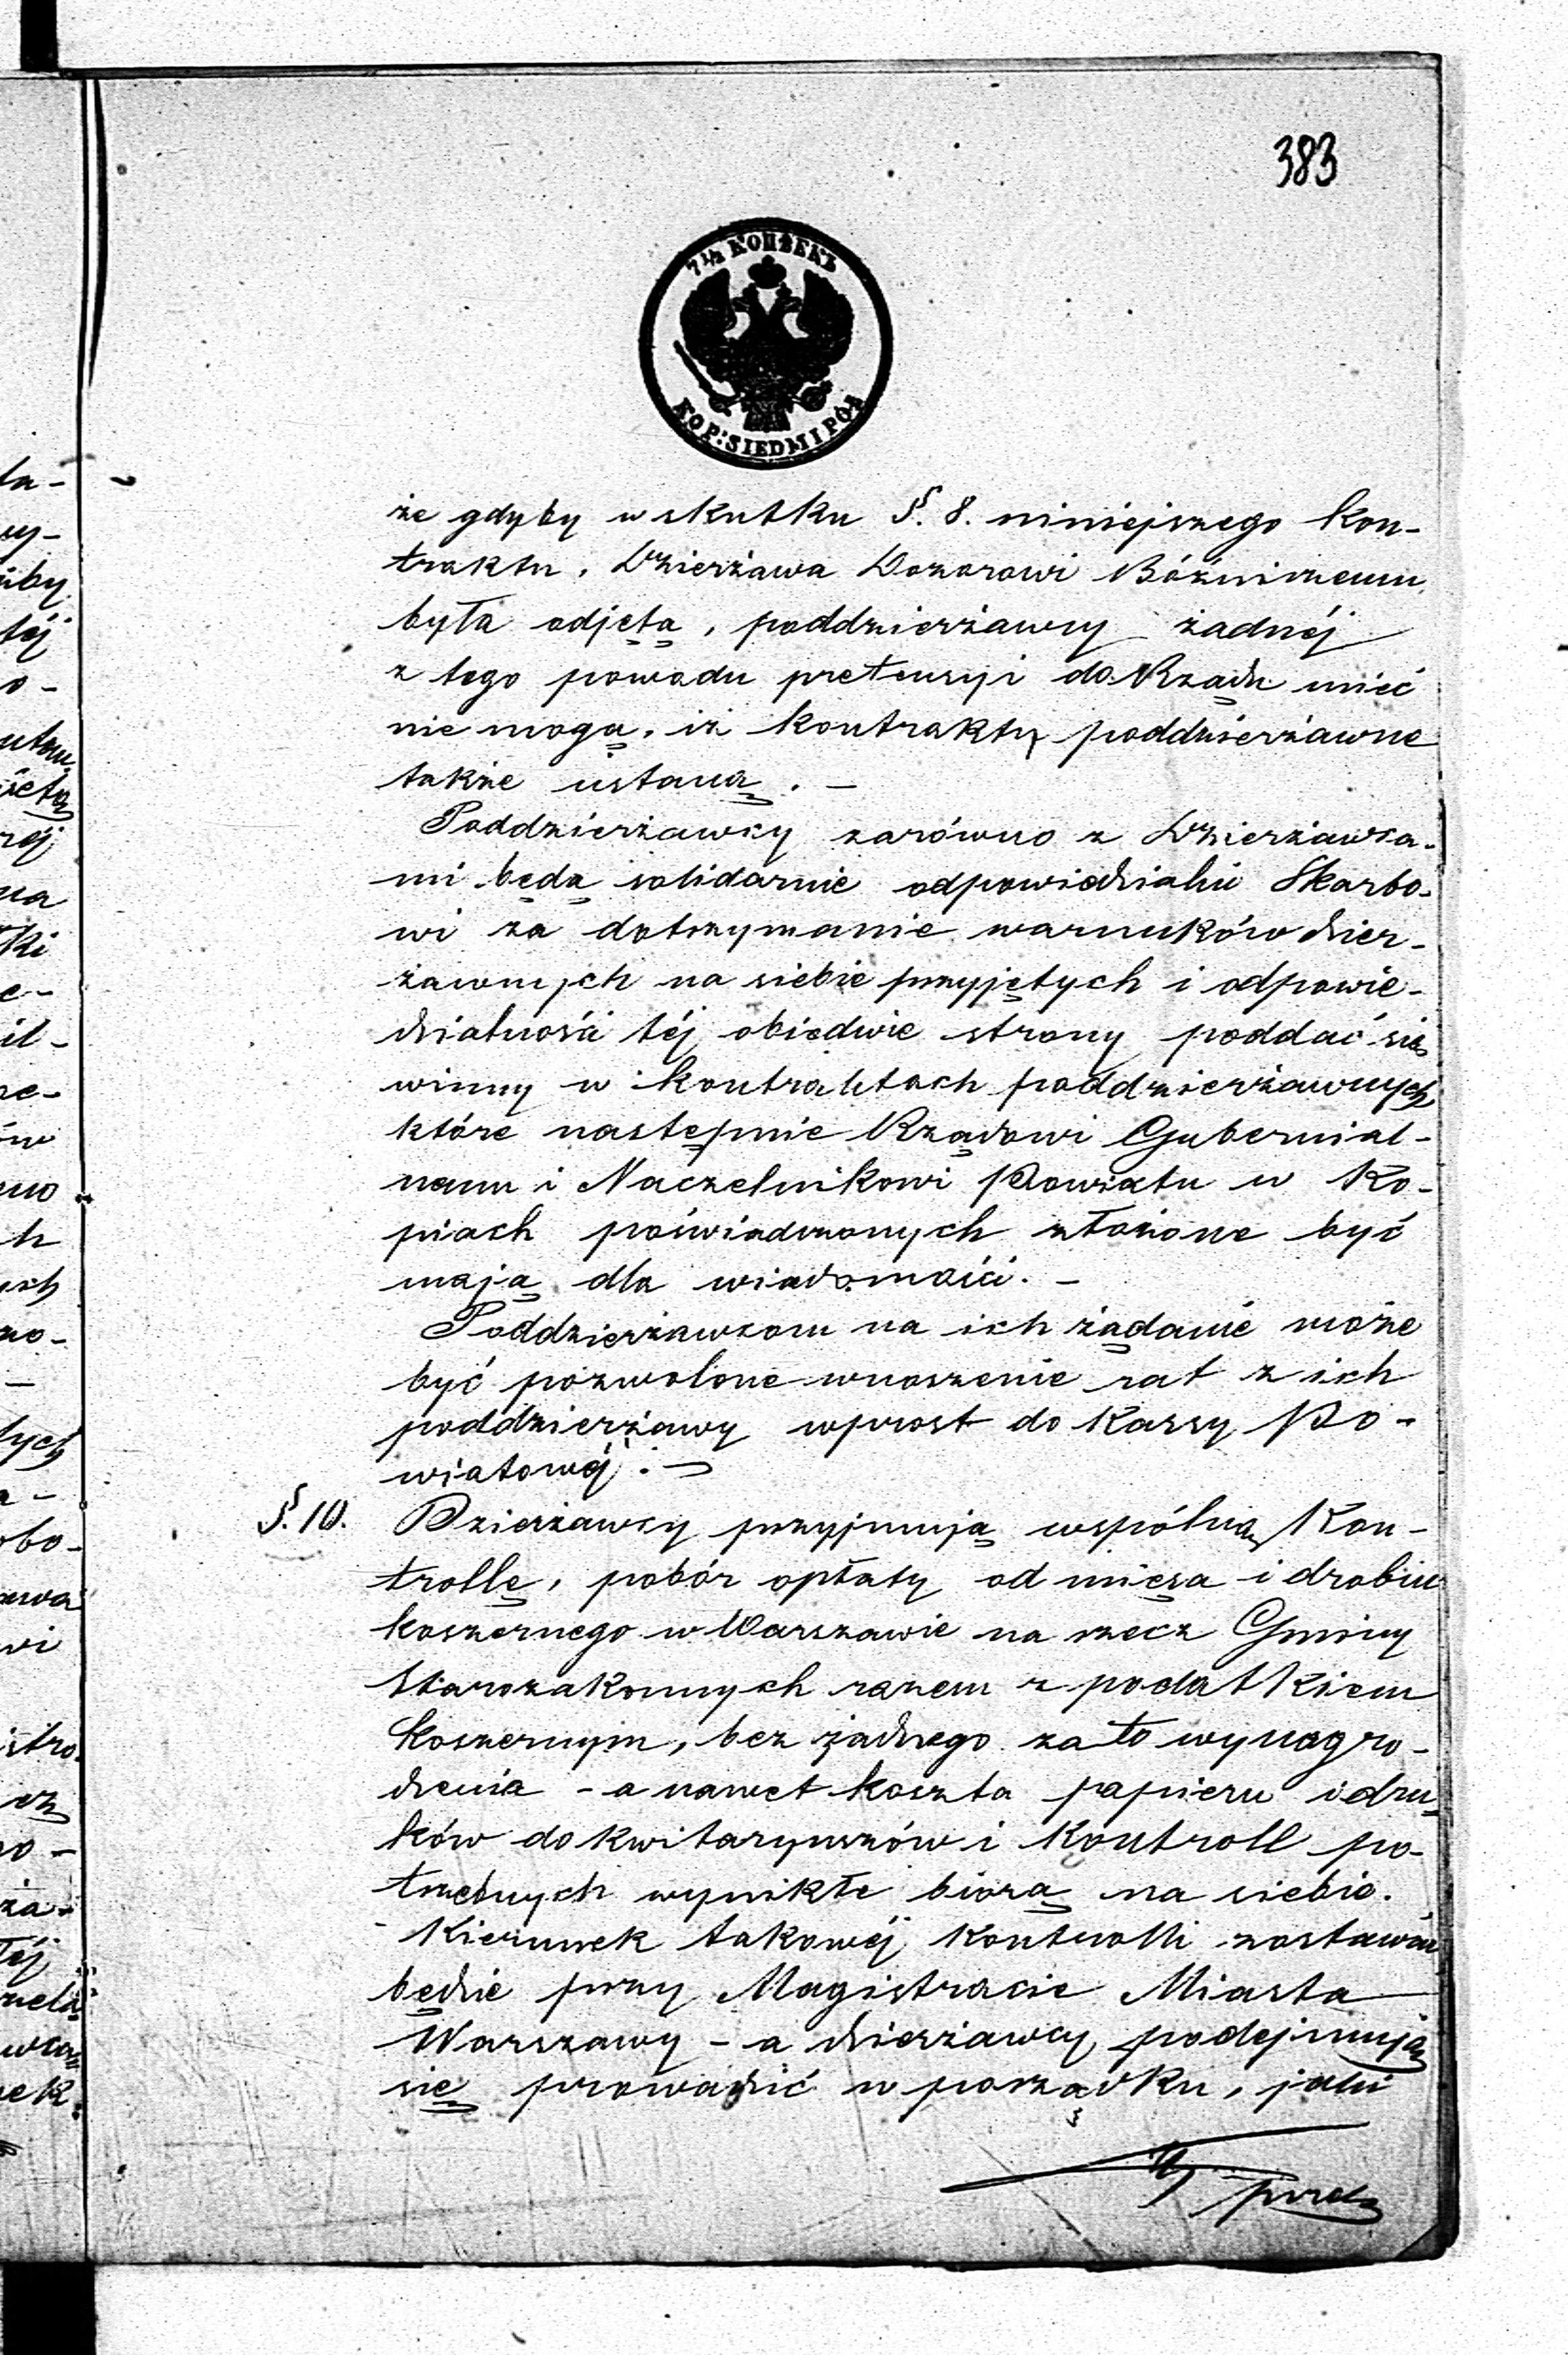 383
7 1/2 КОПѢЕКЪ
KOP: SIEDM I PÓŁ
że gdyby w skutku §. 8. niniejszego kon-
traktu, Dzierżawa Dozorowi Bóźniczemu
była odjętą, poddzierżawcy żadnéj
z tego powodu pretensyi do Rządu mieć
nie mogą, iż kontrakty poddzierżawne
także ustaną. —
Poddzierżawcy zarówno z Dzierżawca-
mi będą solidarnie odpowiedzialni Skarbo-
wi za dotrzymanie warunków dzier-
żawnych na siebie przyjętych i odpowie-
dzialności téj obiedwie strony poddać się
winny w kontraktach poddzierżawnych
które następnie Rządowi Gubernial-
nemu i Naczelnikowi Powiatu w Ko-
piach poświadczonych złożone być
mają dla wiadomości. —
Poddzierżawcom na ich żądanie może
być pozwolone wnoszenie rat z ich
poddzierżawy wprost do Kassy Po-
wiatowéj. —
§. 10. Dzierżawcy przyjmują wspólną Kon-
trollę, pobór opłaty od mięsa i drobiu
koszernego w Warszawie na rzecz Gminy
Starozakonnych razem z podatkiem
koszernym, bez żadnego za to wynagro-
dzenia - a nawet koszta papieru i dru-
ków do kwitaryuszów i Kontroll po-
trzebnych wynikłe biorą na siebie.
Kierunek takowéj Kontrolli zostawać
będzie przy Magistracie Miasta
Warszawy - a dzierżawcy podejmują
się prowadzić w porządku, jaki